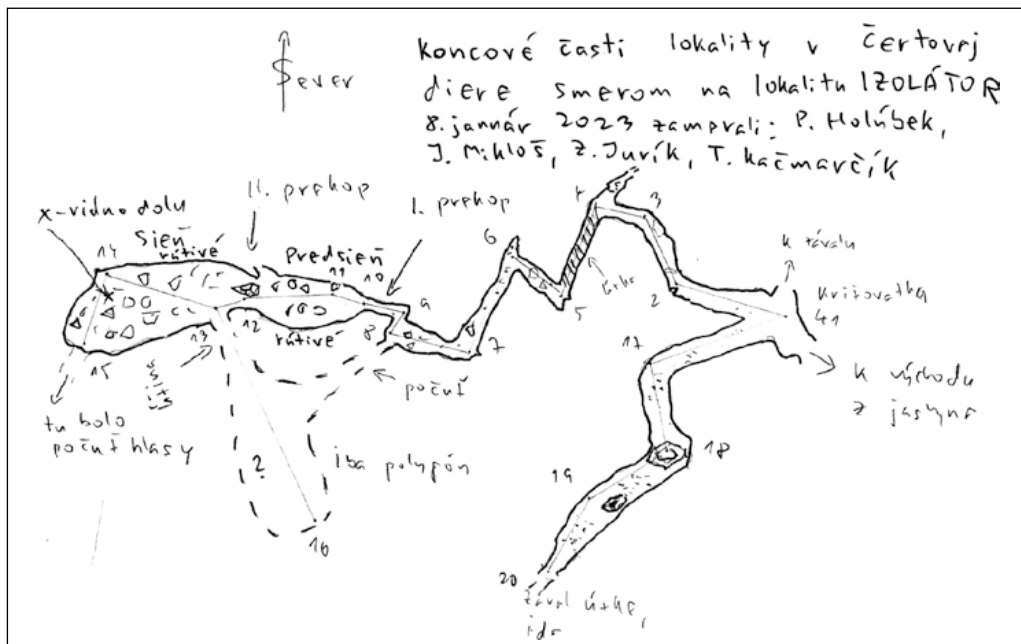 Sever
Koncové časti lokality v Čertovej
diere smerom na lokalitu IZOLÁTOR
8. január 2023 zamerali: P. Holúbek,
J. Mikloš, Z. Jurík, T. Kačmarčík
II. prekop
I. prekop
x-vidno dolu
Sieň
rútivé
Predsieň
14
11
10
9
6
4
3
k závalu
2
Križovatka
41
5
17
8
7
13
12
rútivé
15
počuť
k východu
z jaskyne
tu bolo
počuť hlasy
iba polygón
?
18
19
16
20
Zával